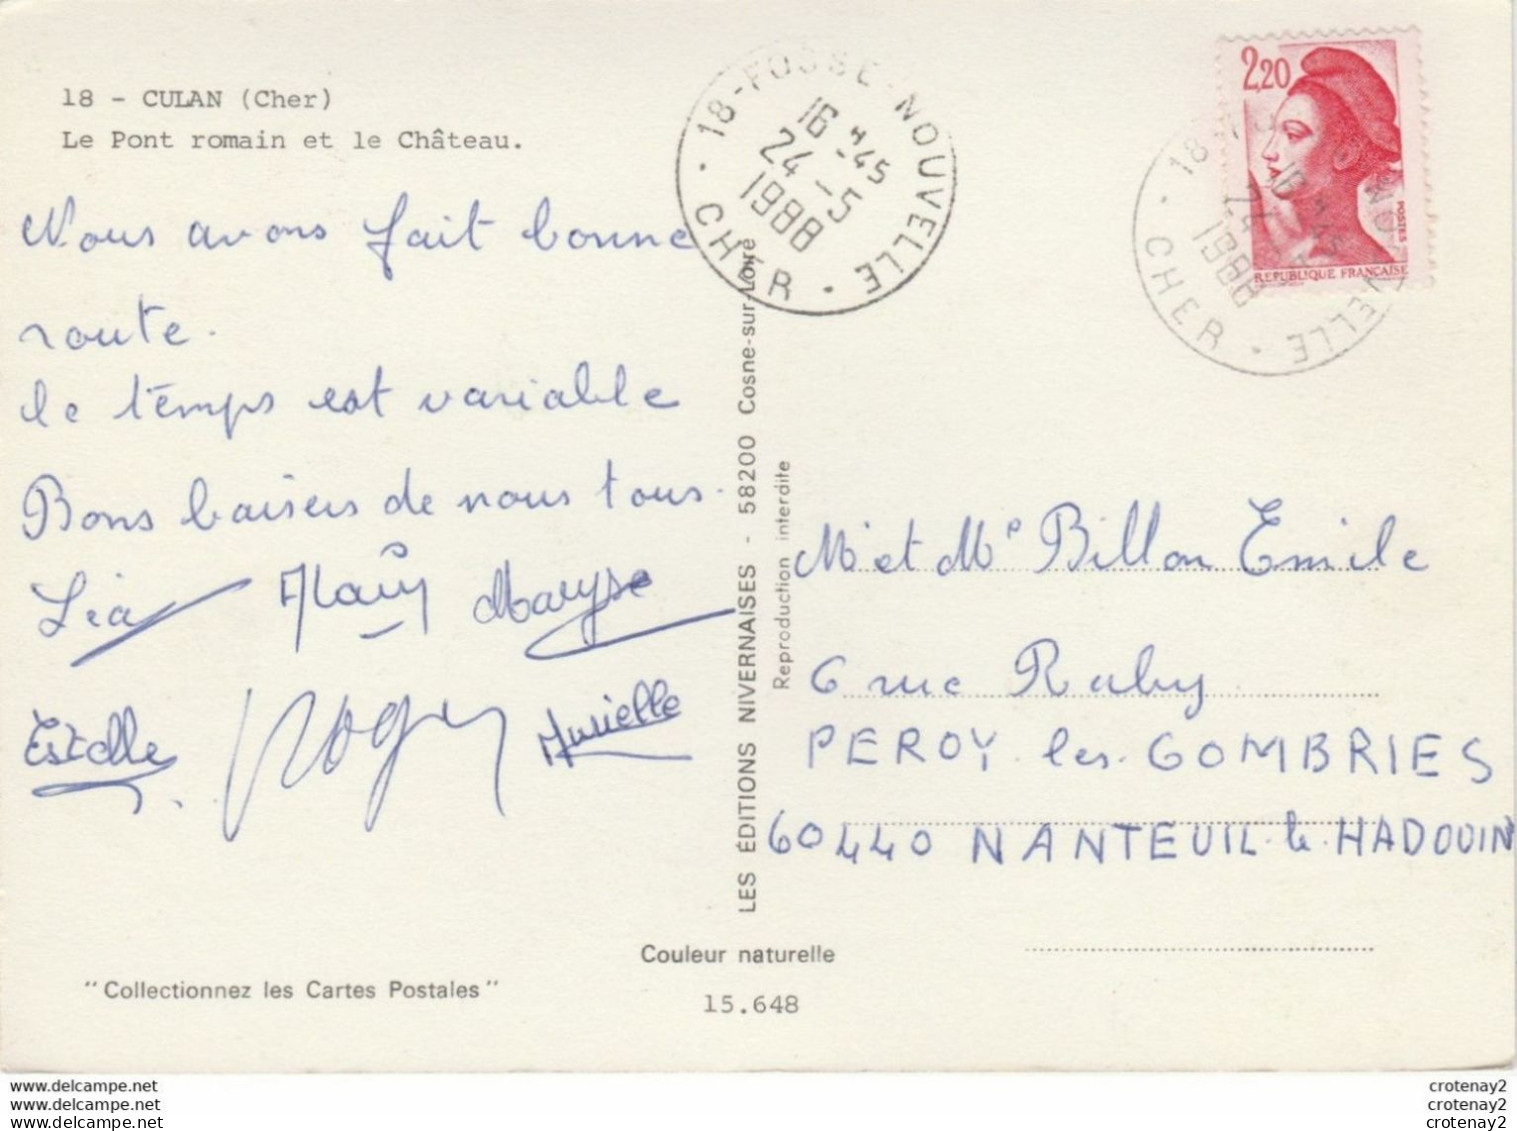 18 - CULAN (Cher)
Le Pont romain et le Château.
Nous avons fait bonne
route.
le temps est variable
Bons baisers de nous tous.
Léa Alain Maryse
Estelle Roger Murielle
"Collectionnez les Cartes Postales"
18 - FOSSE - NOUVELLE
16 H 45
24 - 5
1988
CHER
LES ÉDITIONS NIVERNAISES - 58200 Cosne-sur-Loire
Reproduction interdite
Couleur naturelle
15.648
2,20
POSTES
REPUBLIQUE FRANÇAISE
18
16 H 45
24
1988
NOUVELLE
CHER
Mr et Me Billon Emile
6 rue Raby
PEROY les GOMBRIES
60440 NANTEUIL le HADOUIN
www.delcampe.net
www.delcampe.net
www.delcampe.net
crotenay2
crotenay2
crotenay2